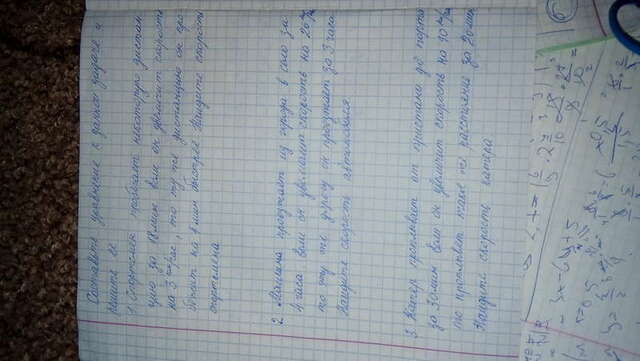 Составьте уравнение к данной задаче и
решите её
1. Спортсмен пробегает некоторую дистан-
цию за 18 мин если он увеличит скорость
на 3 км/час, то ту же дистанцию он про
бежит на 4 мин быстрее Найдите скорость
спортсмена
2 Машина проезжает из города в село за
4 часа если он увеличит скорость на 20 км/ч
то эту же дорогу он проезжает за 3 часа
Найдите скорость автомобиля
3. Катер проплывает от пристани до порта
за 30 мин если он увеличит скорость на 10 км/ч
то проплывёт такое же расстояние за 20 мин
Найдите скорость катера